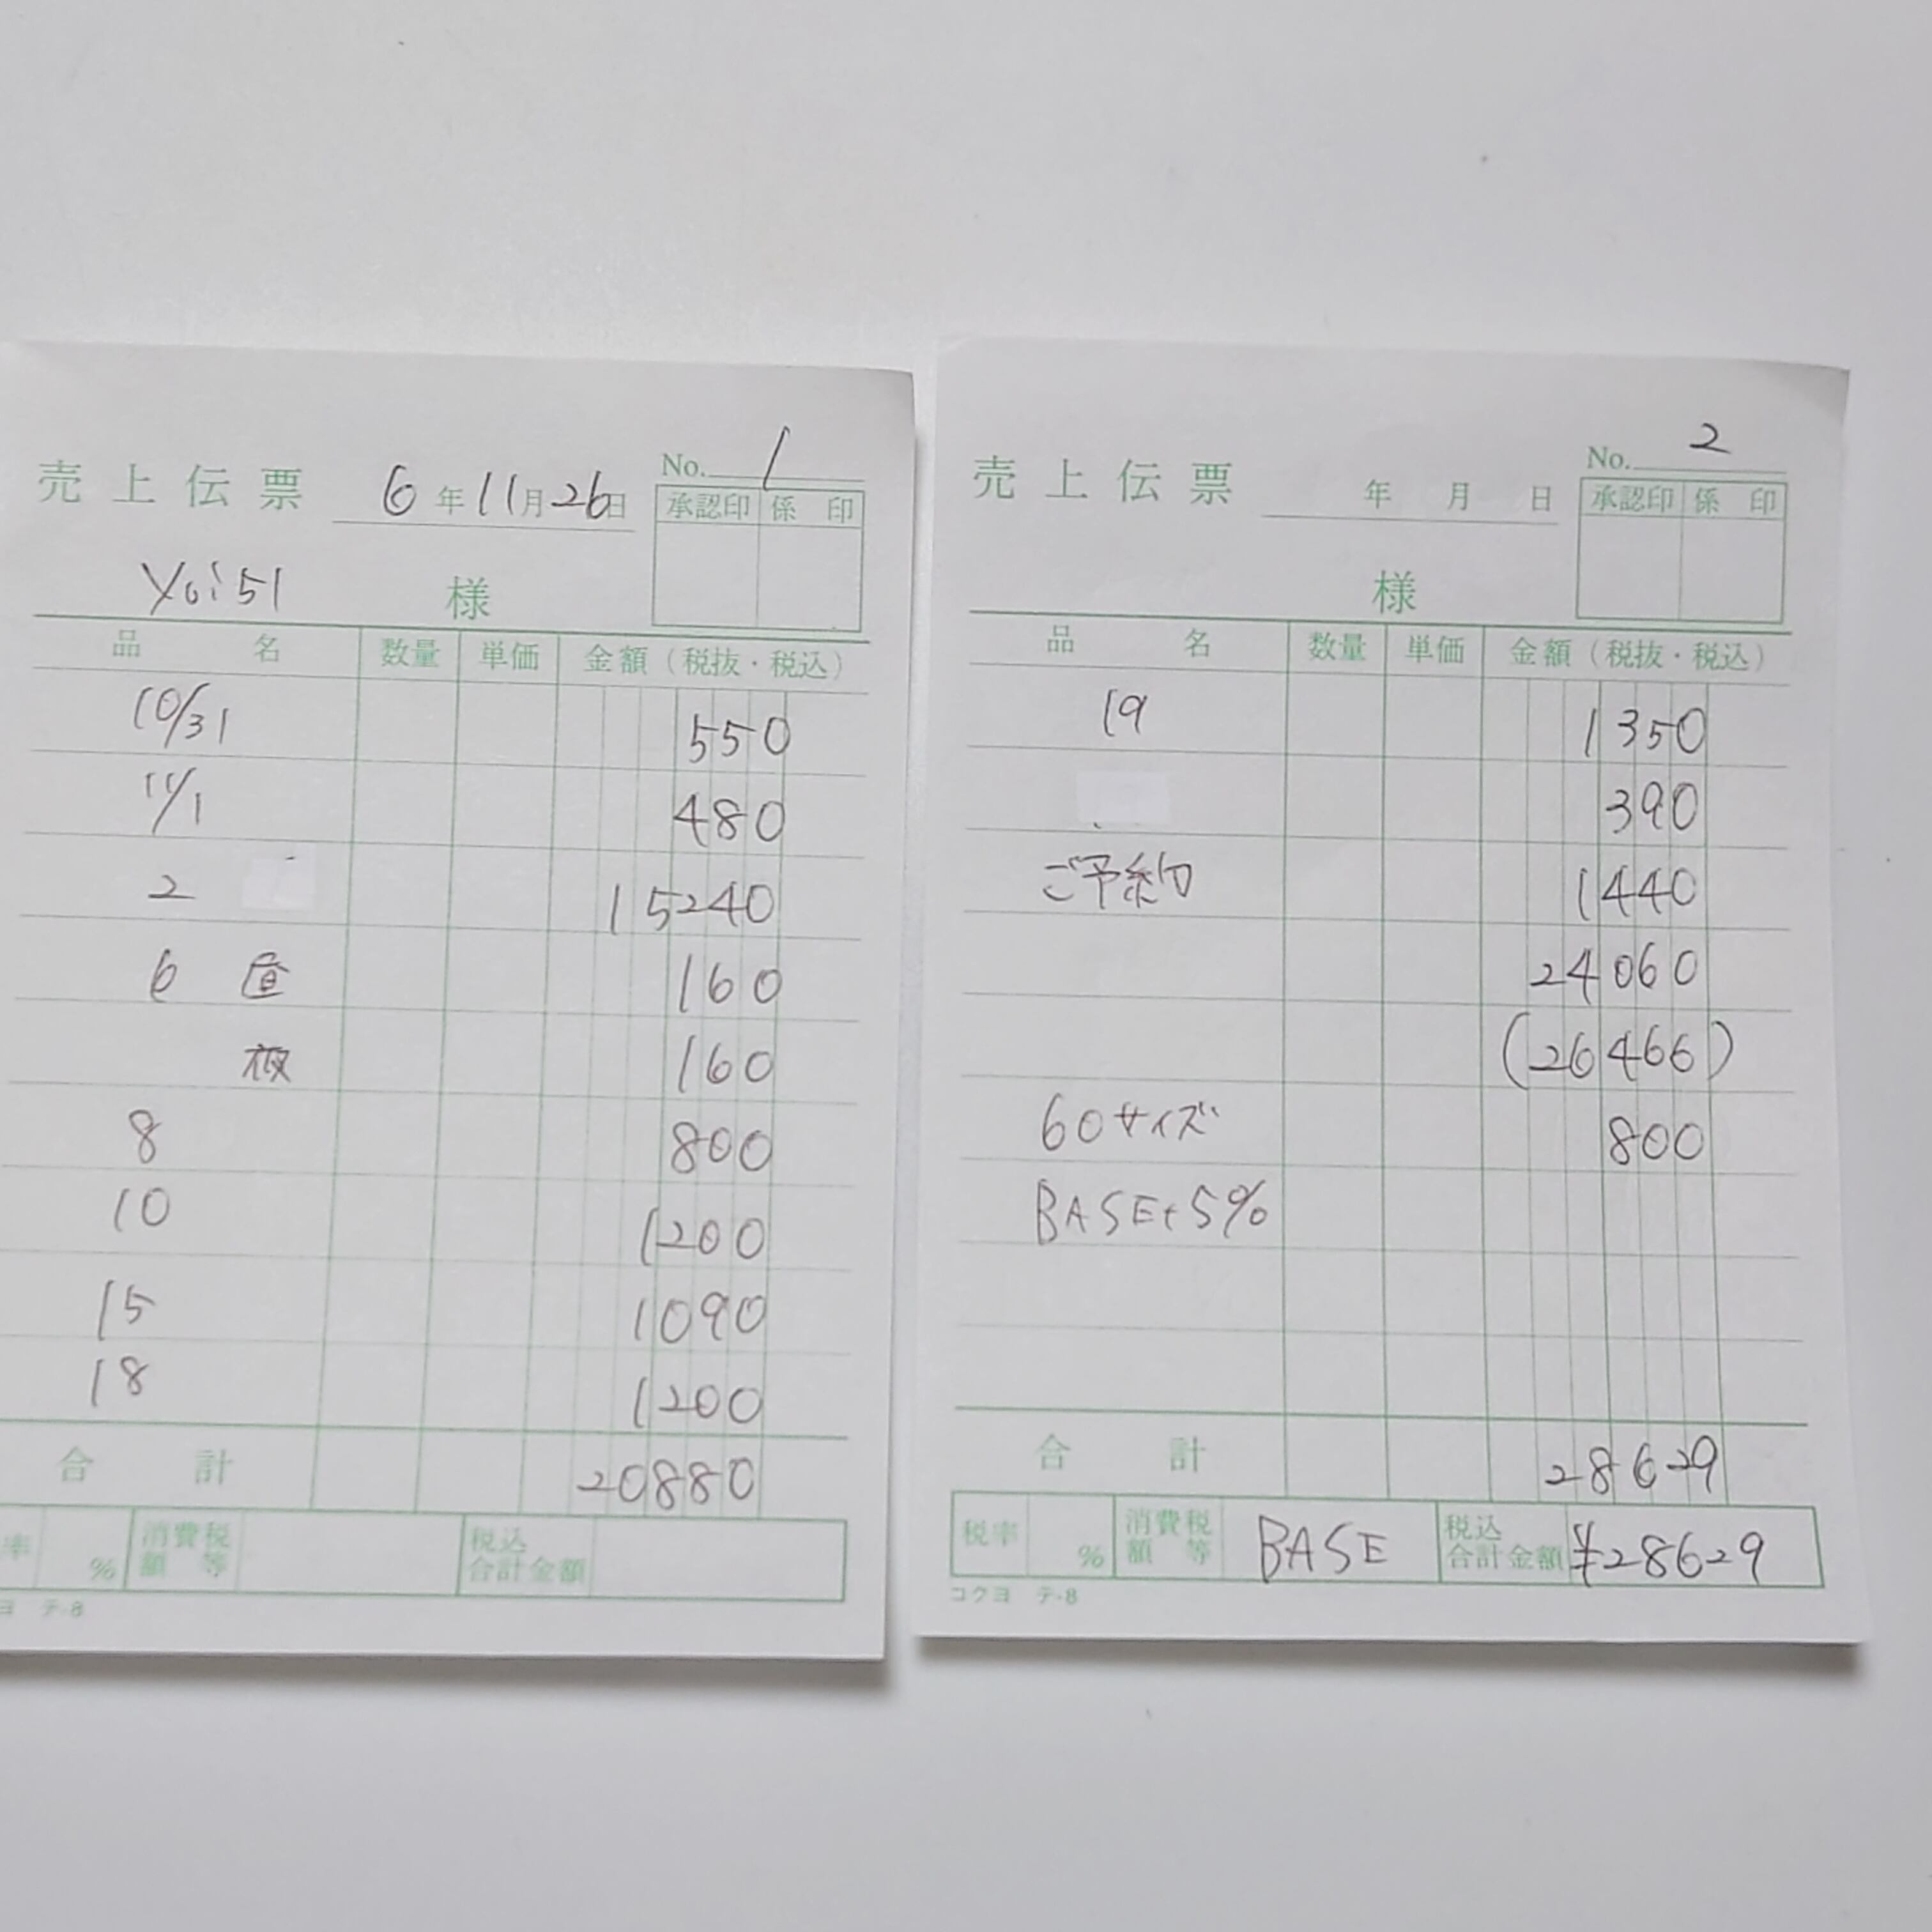 売上伝票 6年11月26日 No. 1
承認印 係印
Yoi51 様
品名 数量 単価 金額(税抜・税込)
10/31 550
11/1 480
2 15240
6 昼 160
夜 160
8 800
10 1200
15 1090
18 1200
合計 20880
率 % 消費税額等 税込合計金額
ヨ テ-8
売上伝票 年 月 日 No. 2
承認印 係印
様
品名 数量 単価 金額(税抜・税込)
19 1350
390
ご予約 1440
24060
(26466)
60サイズ 800
BASE+5%
合計 28629
税率 % 消費税額等 BASE 税込合計金額 ¥28629
コクヨ テ-8